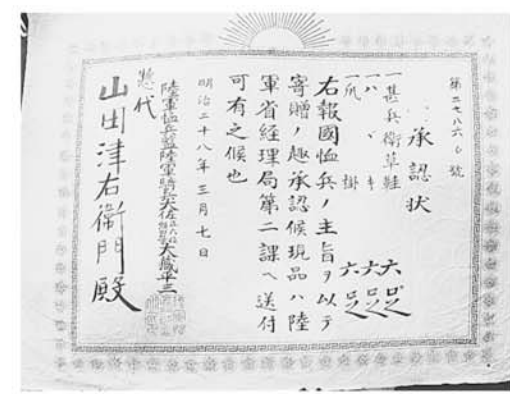 第二七八六七號
承認状
一甚兵衛草鞋 六足
一ハヾキ 六足
一爪掛 六足
右報國恤兵ノ主旨ヲ以テ
寄贈ノ趣承認候現品ハ陸
軍省経理局第二課ヘ送付
可有之候也
明治二十八年三月七日
陸軍恤兵監陸軍騎兵大佐 大蔵平三
惣代
山田津右衛門殿